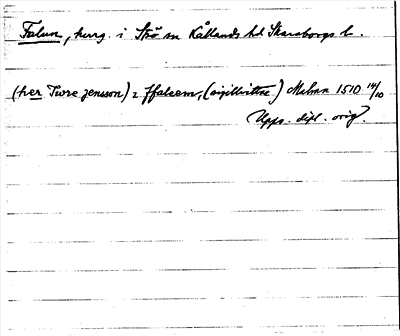 Falun, herrg. i Strö sn Kållands hd Skaraborgs l.
(her Ture Jensson) z Ffaleem, (sigillvittne) Malmn 1510 14/10
Upps. dipl. orig.